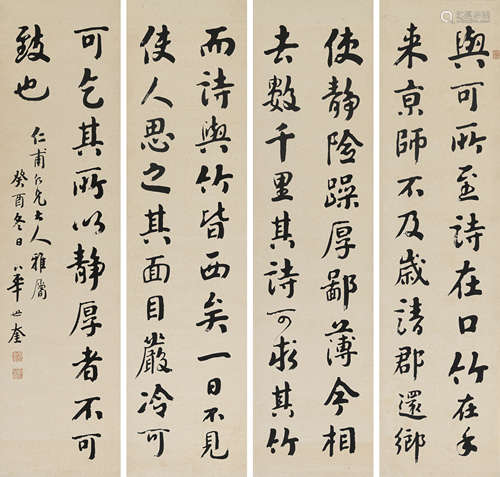 與可所至詩在口竹在手
来亰師不及歲請郡還鄉
使靜險躁厚鄙薄今相
去數千里其詩可求其竹
而詩與竹皆西矣一日不見
使人思之其面目嚴冷可
可乞其所以靜厚者不可
致也
仁甫仁兄大人雅屬
癸酉冬日 華世奎